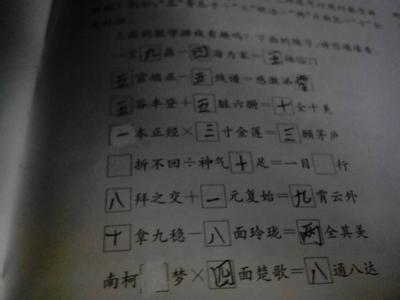 上面的数学游戏有趣吗？下面的练习，请你填填看。
一言九鼎－四海为家＝五福临门
五官端正－五线谱＝感激涕零
五谷丰登＋五脏六腑＝十全十美
一本正经×三寸金莲＝三顾茅庐
折不回÷神气十足＝一目 行
八拜之交＋一元复始＝九霄云外
十拿九稳－八面玲珑＝两全其美
南柯 梦×四面楚歌＝八通八达